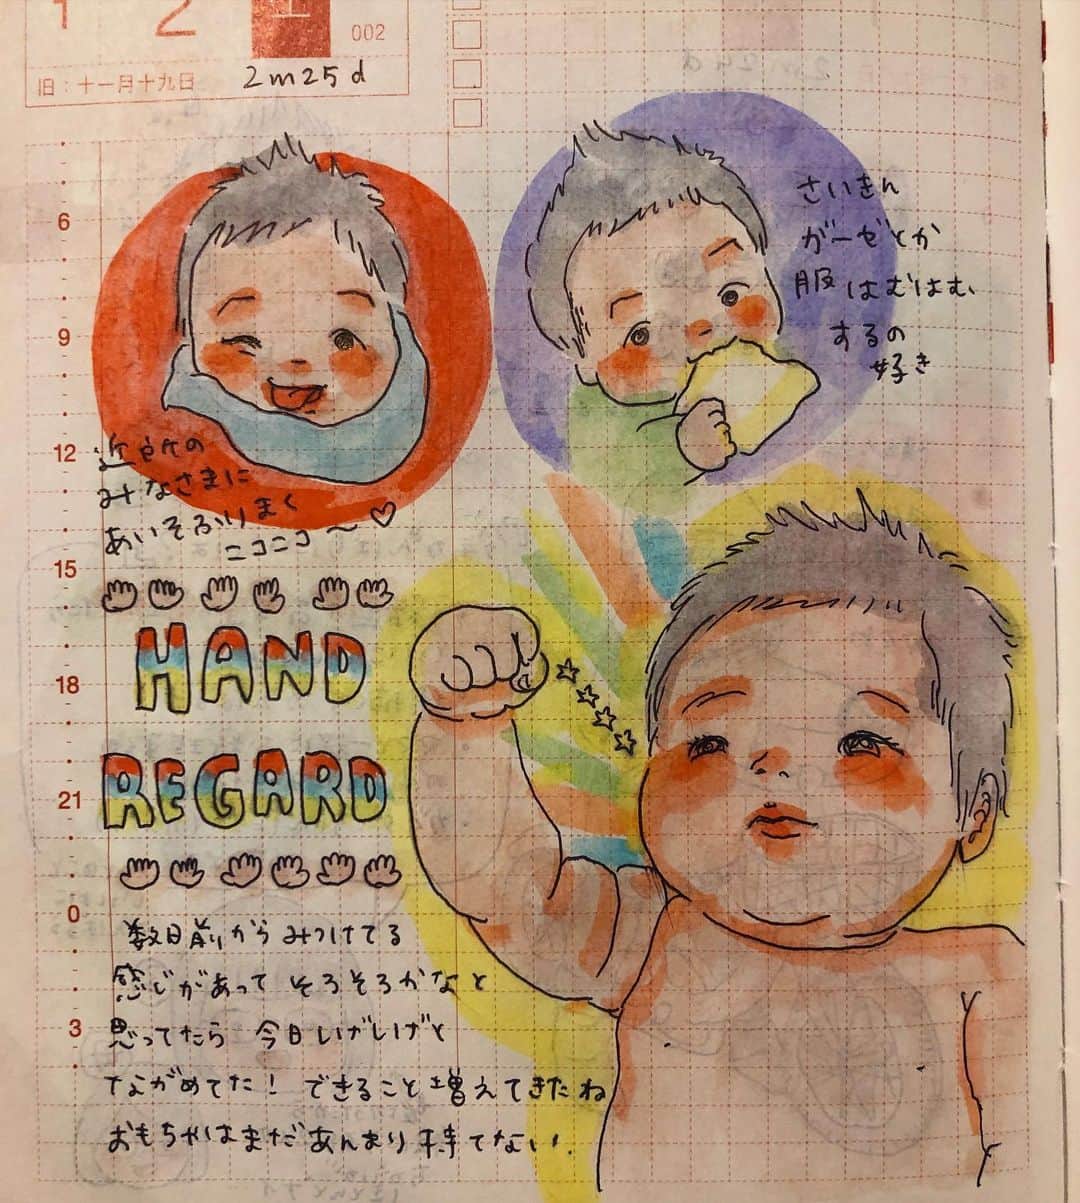 1 2 土
002
旧:十一月十九日
2m25d
さいきん
ガーゼとか
服はむはむ
するの
好き
近所の
みなさまに
あいそふりまく
ニコニコ〜♡
HAND
REGARD
数日前からみつけてる
感じがあって そろそろかなと
思ってたら 今日しげしげと
ながめてた! できること増えてきたね
おもちゃはまだあんまり持てない.
6
9
12
15
18
21
0
3